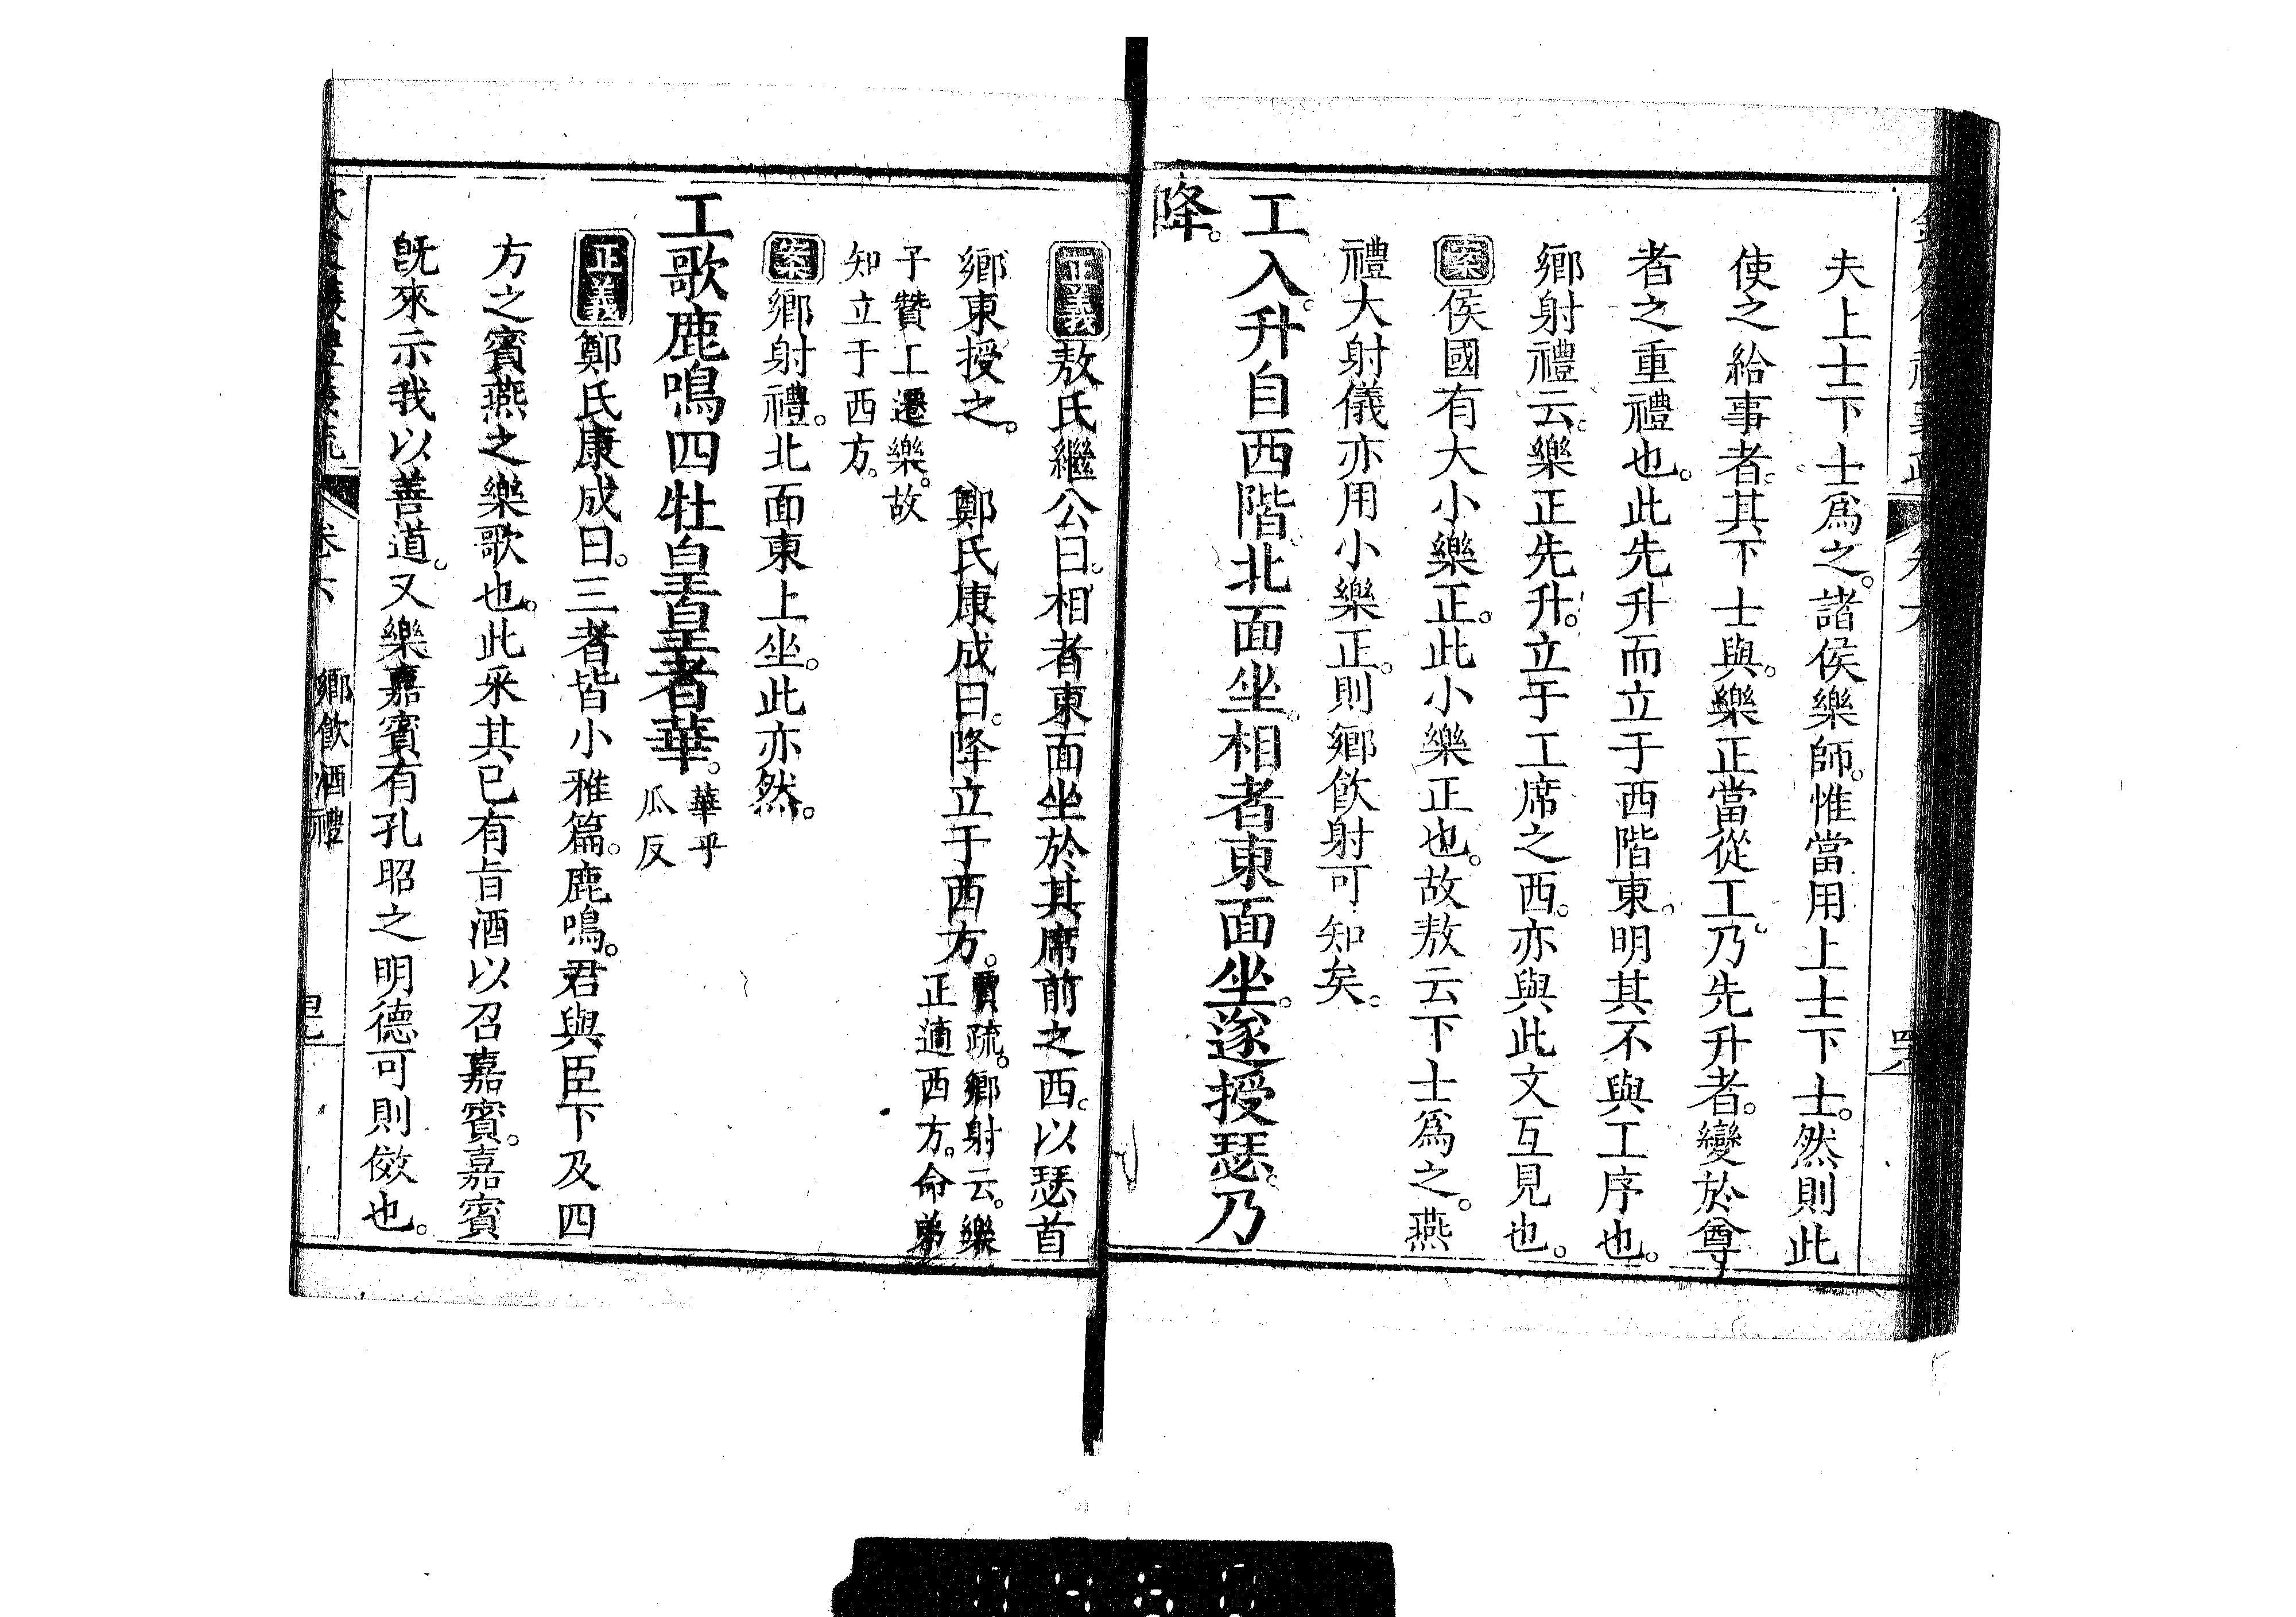 夫上士下士爲之。諸侯樂師。惟當用上士下士。然則此
使之給事者。其下士與。樂正當從工。乃先升者。變於尊
者之重禮也。此先升而立于西階東。明其不與工序也。
鄉射禮云。樂正先升。立于工席之西。亦與此文互見也。
案侯國有大小樂正。此小樂正也。故敖云下士爲之。燕
禮大射儀亦用小樂正。則鄉飲射可知矣。
工入。升自西階。北面坐。相者東面坐。遂授瑟。乃
降。
正義敖氏繼公曰。相者東面坐於其席前之西。以瑟首
鄉東授之。 鄭氏康成曰。降立于西方。賈疏。鄉射云。樂
正適西方。命弟
子贊工遷樂。故
知立于西方。
案鄉射禮。北面東上坐。此亦然。
工歌鹿鳴四牡皇皇者華。華乎
瓜反
正義鄭氏康成曰。三者皆小雅篇。鹿鳴。君與臣下及四
方之賓燕之樂歌也。此采其已有旨酒以召嘉賓。嘉賓
旣來示我以善道。又樂嘉賓有孔昭之明德可則傚也。
卷六 鄉飲酒禮